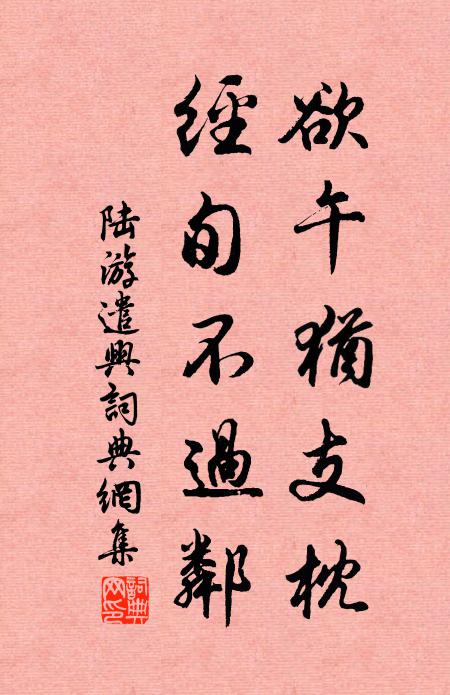 欲午猶支枕
經旬不過鄰
陸游遣興詞典網集
詞典網印